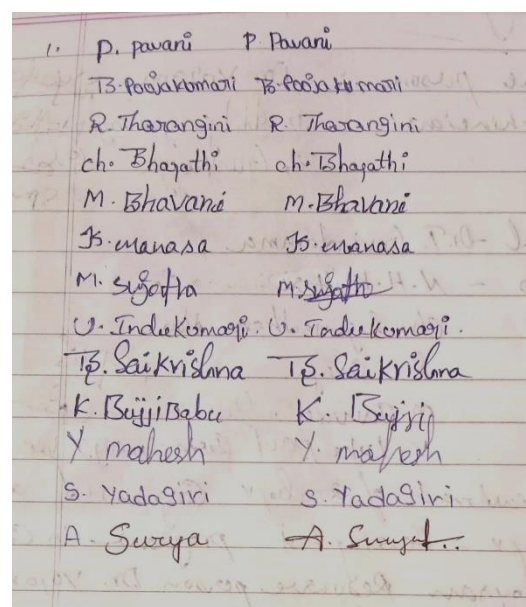 1. P. pavani P. Pavani
B. Poojakumari B. Poojakumari
R. Tharangini R. Tharangini
ch. Bharathi ch. Bharathi
M. Bhavani M. Bhavani
K. manasa K. manasa
M. Sujatha M. Sujatha
U. Indukumari. U. Indukumari.
B. Saikrishna B. Saikrishna
K. BujjiBabu K. Bujji
Y mahesh Y. mahesh
S. Yadagiri S. Yadagiri
A. Surya A. Surya